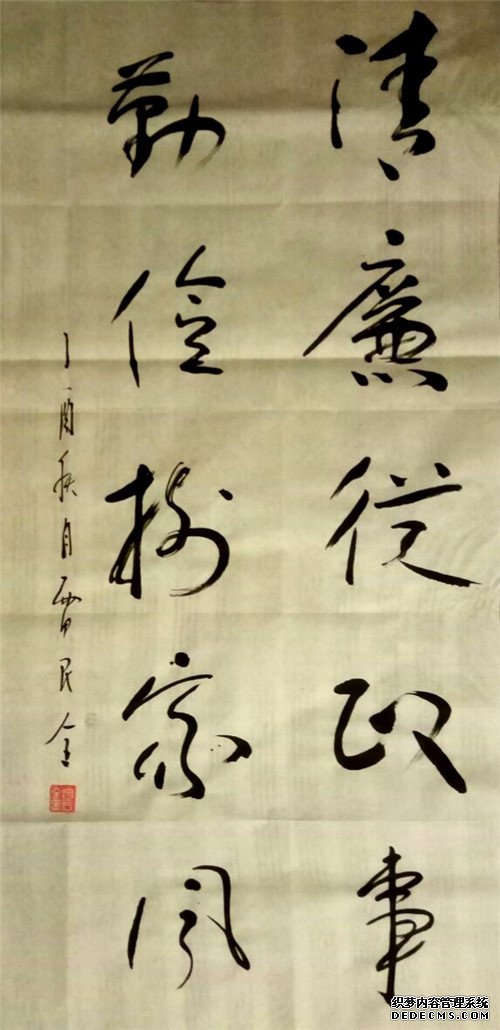 清廉从政事
勤俭树家风
丁酉秋月曹民全
织梦内容管理系统
DEDECMS.COM